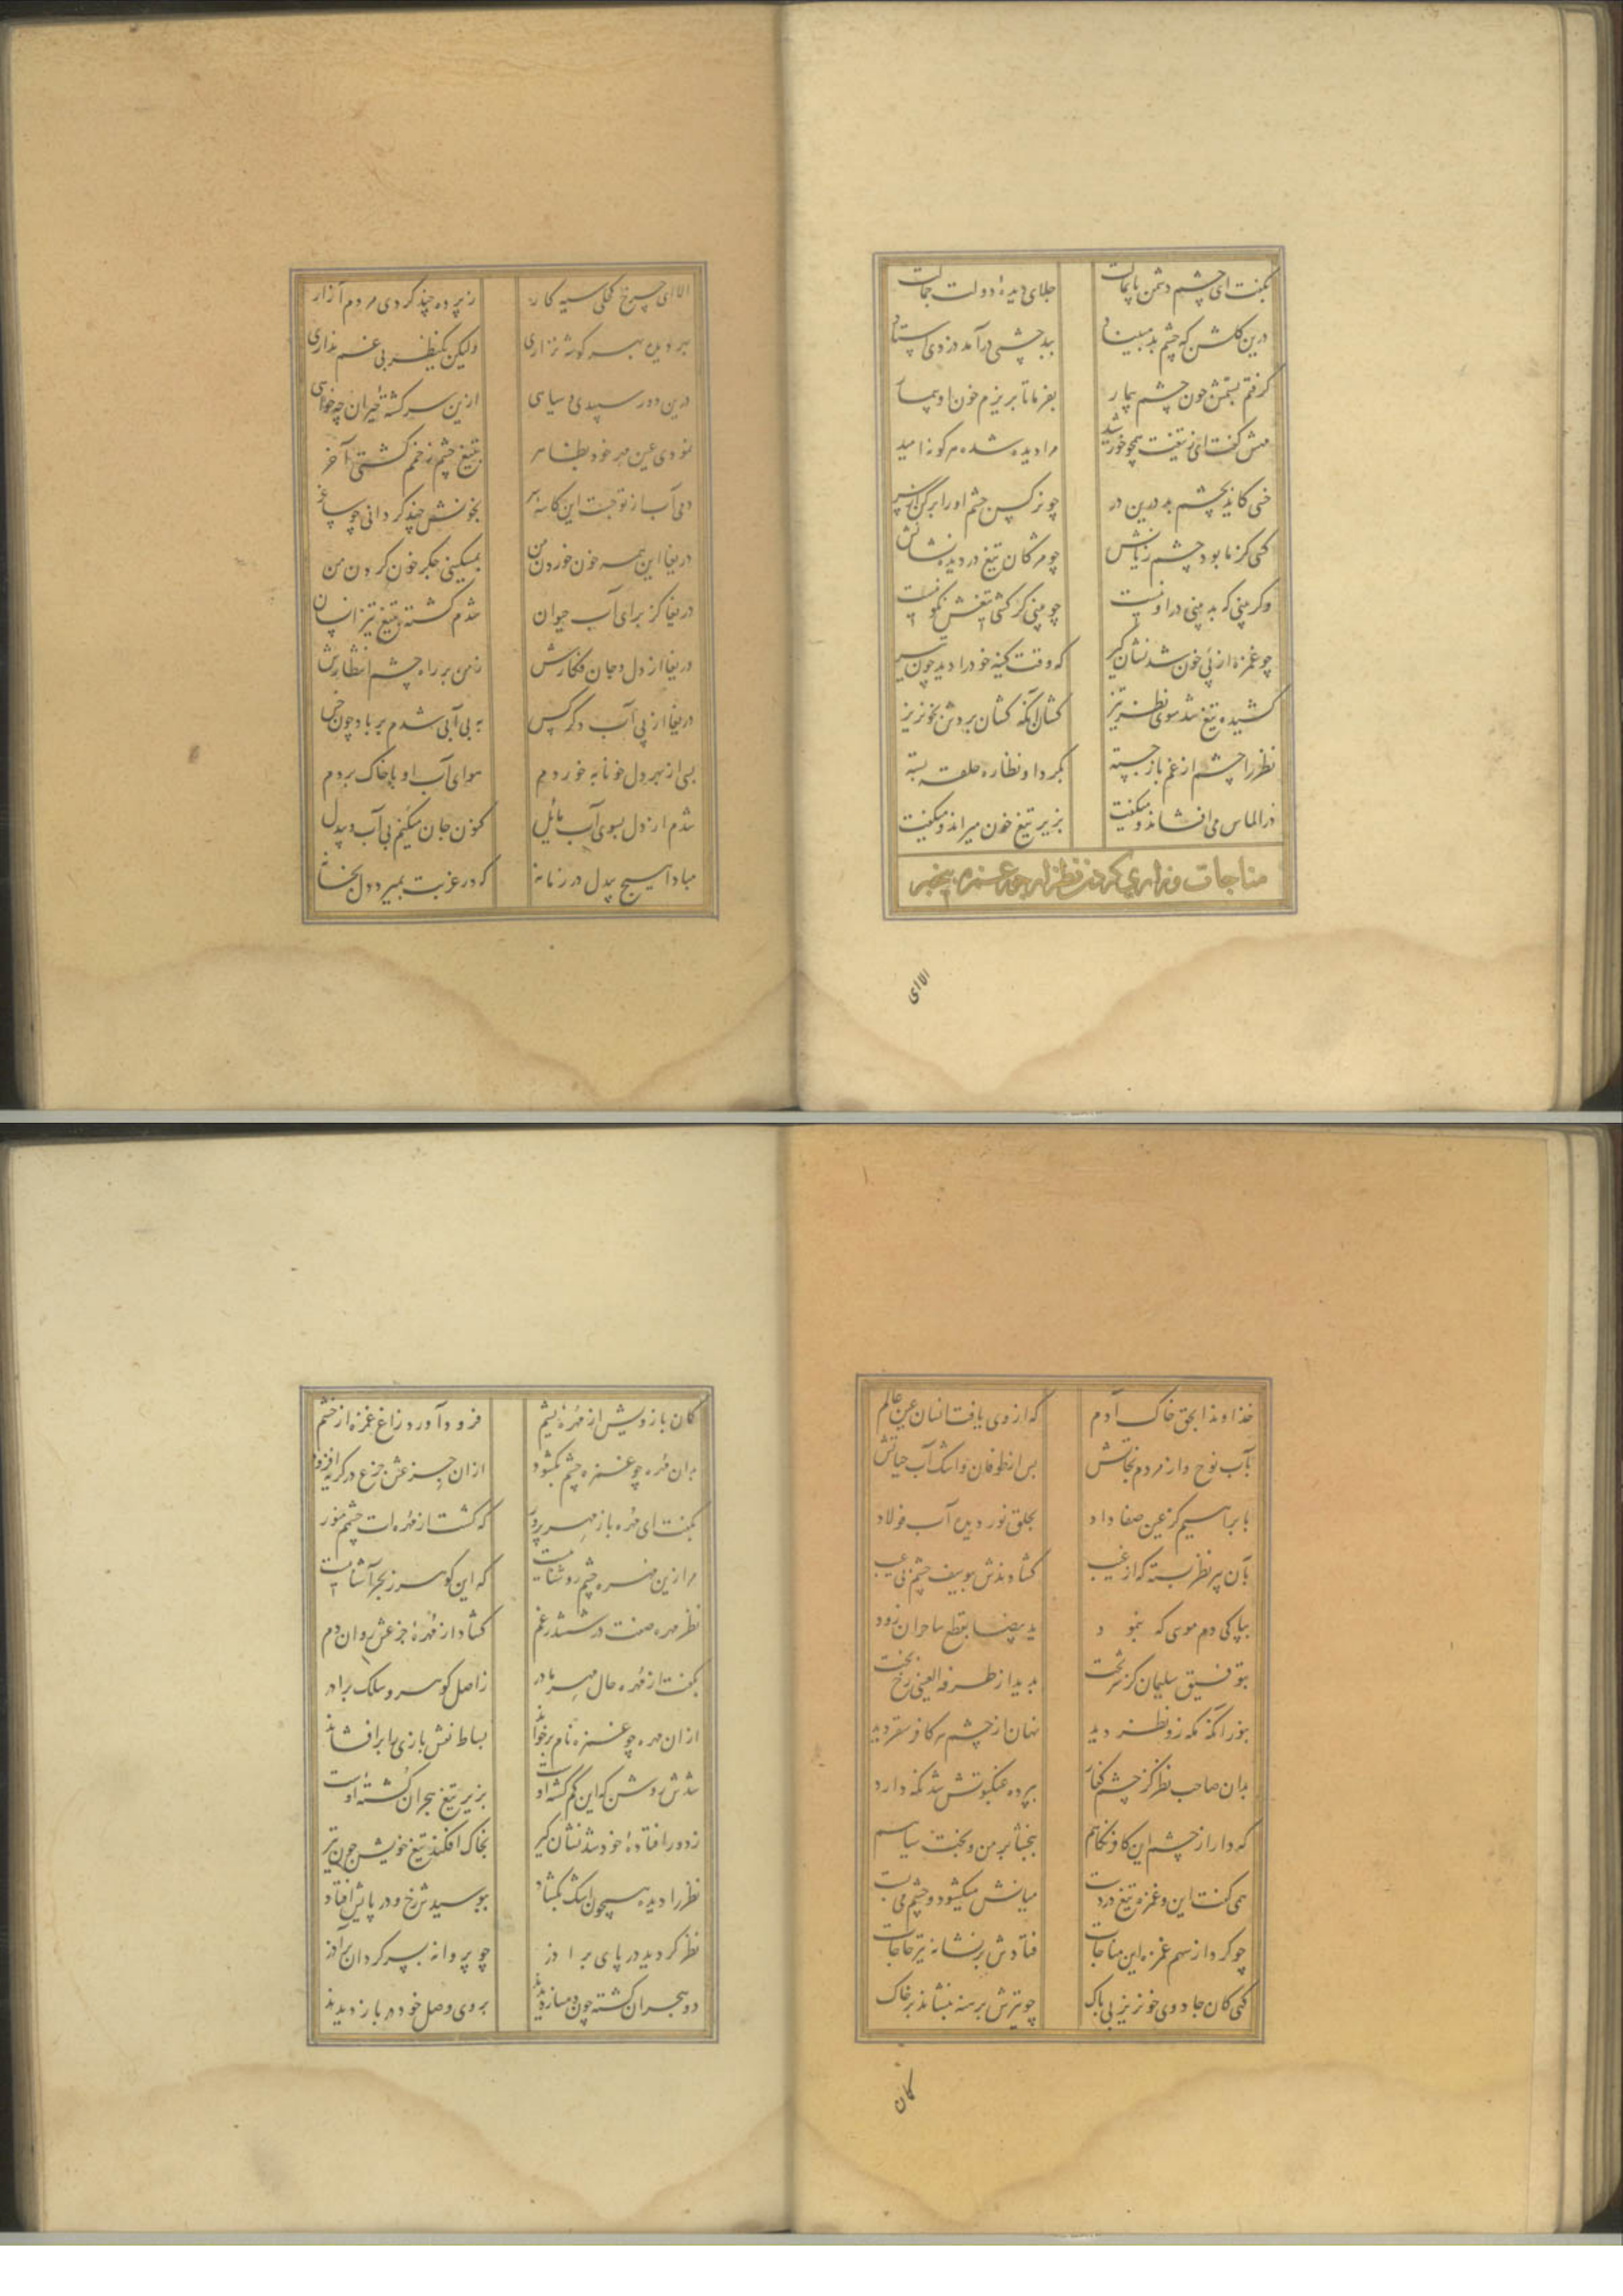 بگفت ای چشم دشمن پایمالت جلای دیدهٔ دولت جمالت
درین گلشن که چشم بد مبیناد ببد چشمی درآمد دزدی استاد
گرفتم بستمش چون چشم بیمار بفرما تا بریزم خون او
مرا دیده شده هر گونه امید
خسی کاید بچشم بد درین در چو نرگس چشم او را برکن از سر
کسی کز ما بود چشم زیانش چو مژگان تیغ در دیده نشانش
وگر بینی که بد بینی درو نیست چو بینی گر کشی تیغش نکو نیست
چو غمزه از پی خون شد نشان گیر که وقت کینه خود را دید چون تیر
کشیده تیغ شد سوی نظر تیز کشان آنگه کشان بردش بخونریز
نظر را چشم از غم باز جسته بگرد او نظاره حلقه بسته
در الماس می افشاند و میگفت بزیر تیغ خون میراند و میگفت
مناجات و زاری کردن نظر از جور غمزه بیخبر
الاای
الا ای چرخ کحلی سیه کار ز پرده چند گردی مردم آزار
ولیکن یکنظر بی غم نداری
درین دور سپیدی و سیاهی ازین سرگشتهٔ حیران چه خواهی
نمودی عین مهر خود بظاهر بتیغ چشم زخمم کشتی آخر
دمی آب از تو جست این کاسه سر بخونش چند گردانی چو ساغر
دریغا این همه خون خوردن من بمسکینی جگر خون کردن من
دریغا کز برای آب حیوان شدم کشته بتیغ تیز ازینسان
دریغا از دل و جان فکارش ز من بر راه چشم انتظارش
دریغا از پی آب دگر کس به بی آبی شدم بر باد چون خس
بسی از بهر دل خونابه خوردم هوای آب او با خاک بردم
شدم از دل بسوی آب مائل کنون جان میکنم بی آب و بیدل
مبادا هیچ بیدل در زمانه که در غربت بمیرد دل بخانه
خداوندا بحق خاک آدم که از وی یافت انسان عین عالم
بآب نوح و از مردم نجاتش پس از طوفان و اشک آب حیاتش
بابراهیم کز عین صفا داد بحلق نور دیده آب فولاد
بآن پیر نظر بسته که از غیب گشادندش بیوسف چشم بی عیب
بپاکی دم موسی که بنمود ید بیضا بقطع ساحران زود
بتوفیق سلیمان کز سر تخت بدید از طرفة العینی رخ بخت
نهان از چشم هر کافر سقر دید
بدان صاحب نظر کز چشم کفار بپرده عنکبوتش شد نگه دار
که دار از چشم این کافر نگاهم ببخشا بر من و بخت سیاهم
همی گفت این و غمزه تیغ در دست میانش میگشود و چشم می بست
چو کرد از سهم غمزه این مناجات فتادش بر نشانه تیر حاجات
کسی کان جادوی خونریز بی باک چو تیرش برهنه بنشاند بر خاک
کان
کان بازویش از مهره یشم فرود آورد زاغ غمزه از خشم
بدان مهره چو غمزه چشم بگشود ازان جزعش جزع در گریه افزود
بگفت ای مهره باز مهر پرور که گشت از مهره ات چشمم منور
مرا زین مهره چشم روشنایست که این گوهر ز بحر آشنایست
نظر مهره صفت در ششدر غم گشاد از مهرهٔ جزعش روان دم
بگفت از مهره حال مهر مادر ز اصل گوهر و سلک برادر
ازان مهره چو غمزه نام برخواند بساط نقش بازی را برافشاند
شدش روشن که این گم گشته اوست بزیر تیغ هجران کشتهٔ اوست
ز دور افتادهٔ خود شد نشان گیر بخاک افکند تیغ خویش چون تیر
نظر را دیده همچون اشک بگشاد ببوسیدش رخ و در پایش افتاد
نظر گردید در پای برادر چو پروانه بسر گردان بر آذر
دو هجران گشته چون دمساز دیدند بروی وصل خود در باز دیدند